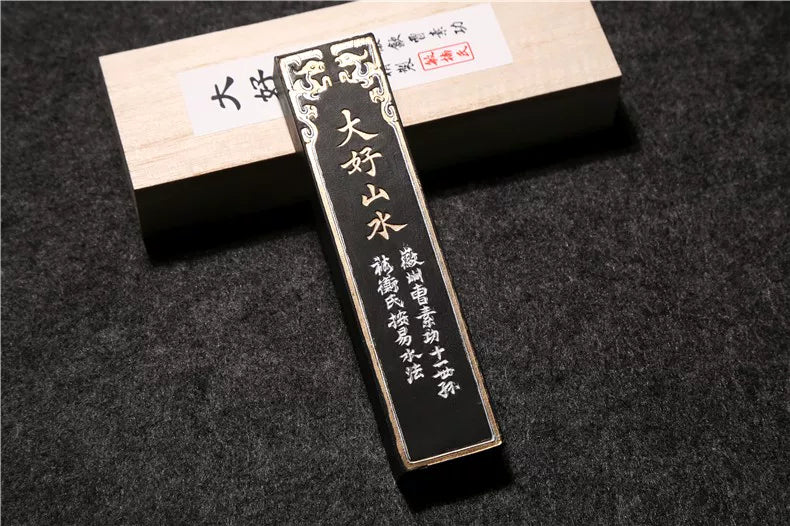 大好山水
徽州曹素功十一世孫
裕衡氏按易水法
大好
歙曹素功
製